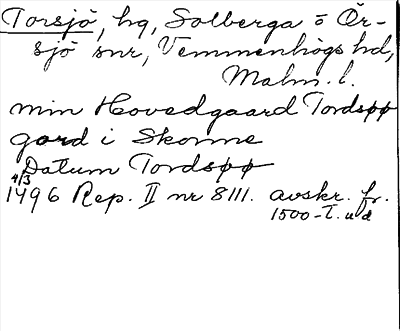 Torsjö, hg, Solberga o Ör-
sjö snr, Vemmenhögs hd,
Malm. l.
min Hovedgaard Tordsøø
gord i Skonne
Datum Tordsøø
4/3
1496 Rep. II nr 8111. avskr. fr.
1500-t. ud